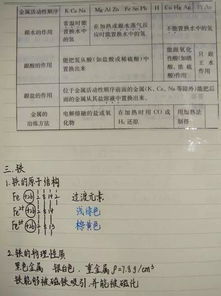 金属活动性顺序 K Ca Na Mg Al Zn Fe Sn Pb H Cu Hg Ag
跟水的作用
常温时能置换水中的氢
在加热或跟水蒸气反应时能置换水中的氢
不能置换水中的氢
跟酸的作用
能把氢从酸(如盐酸或稀硫酸)中置换出来
只跟王水作用
跟盐的作用
位于金属活动性顺序前面的金属(K、Ca、Na等除外)能把后面的金属从其盐溶液中置换出来
金属的冶炼方法
电解熔融的盐或氧化物
在加热时用CO或H₂还原
用加热法制得
三.铁
1.铁的原子结构
Fe
过渡元素
Fe²⁺
浅绿色
Fe³⁺
棕黄色
2.铁的物理性质
黑色金属 银白色 重金属 ρ=7.8g/cm³
铁能够被磁铁吸引,并能被磁化